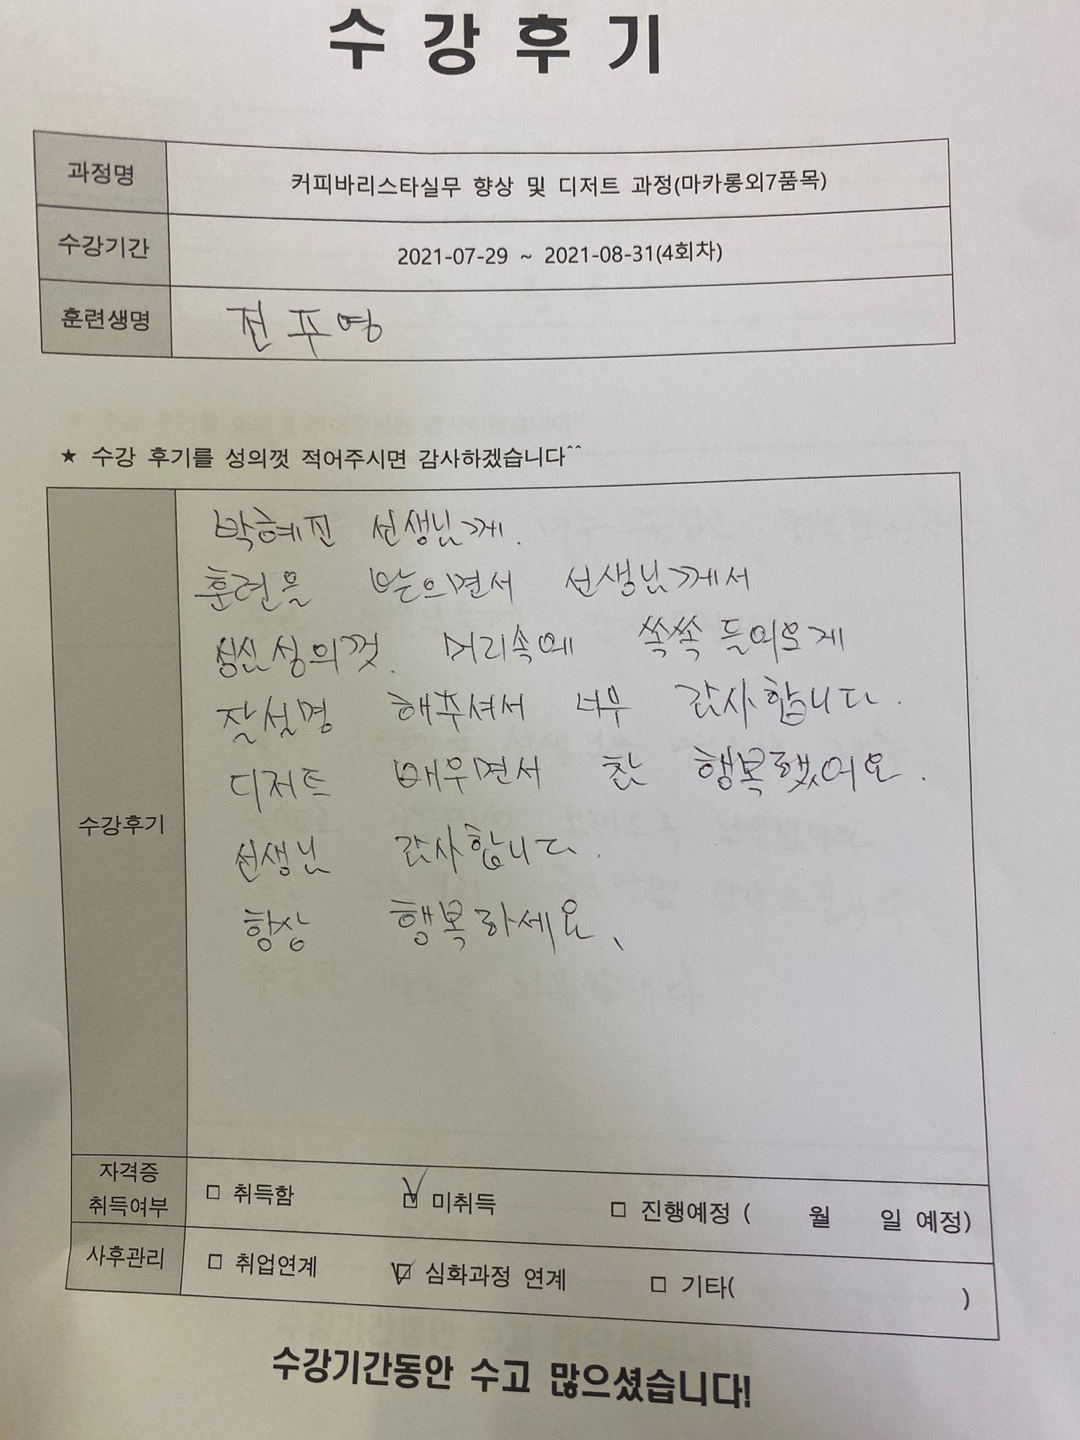 수강후기
과정명 커피바리스타실무 향상 및 디저트 과정(마카롱외7품목)
수강기간 2021-07-29 ~ 2021-08-31(4회차)
훈련생명 전푸영
★ 수강 후기를 성의껏 적어주시면 감사하겠습니다^^
박혜진 선생님께.
훈련을 받으면서 선생님께서
성심성의껏. 머리속에 쏙쏙 들어오게
잘설명 해주셔서 너무 감사합니다.
디저트 배우면서 참 행복했어요.
수강후기
선생님 감사합니다.
항상 행복하세요.
자격증
취득여부 □ 취득함 ☑ 미취득 □ 진행예정 ( 월 일 예정)
사후관리 □ 취업연계 ☑ 심화과정 연계 □ 기타( )
수강기간동안 수고 많으셨습니다!